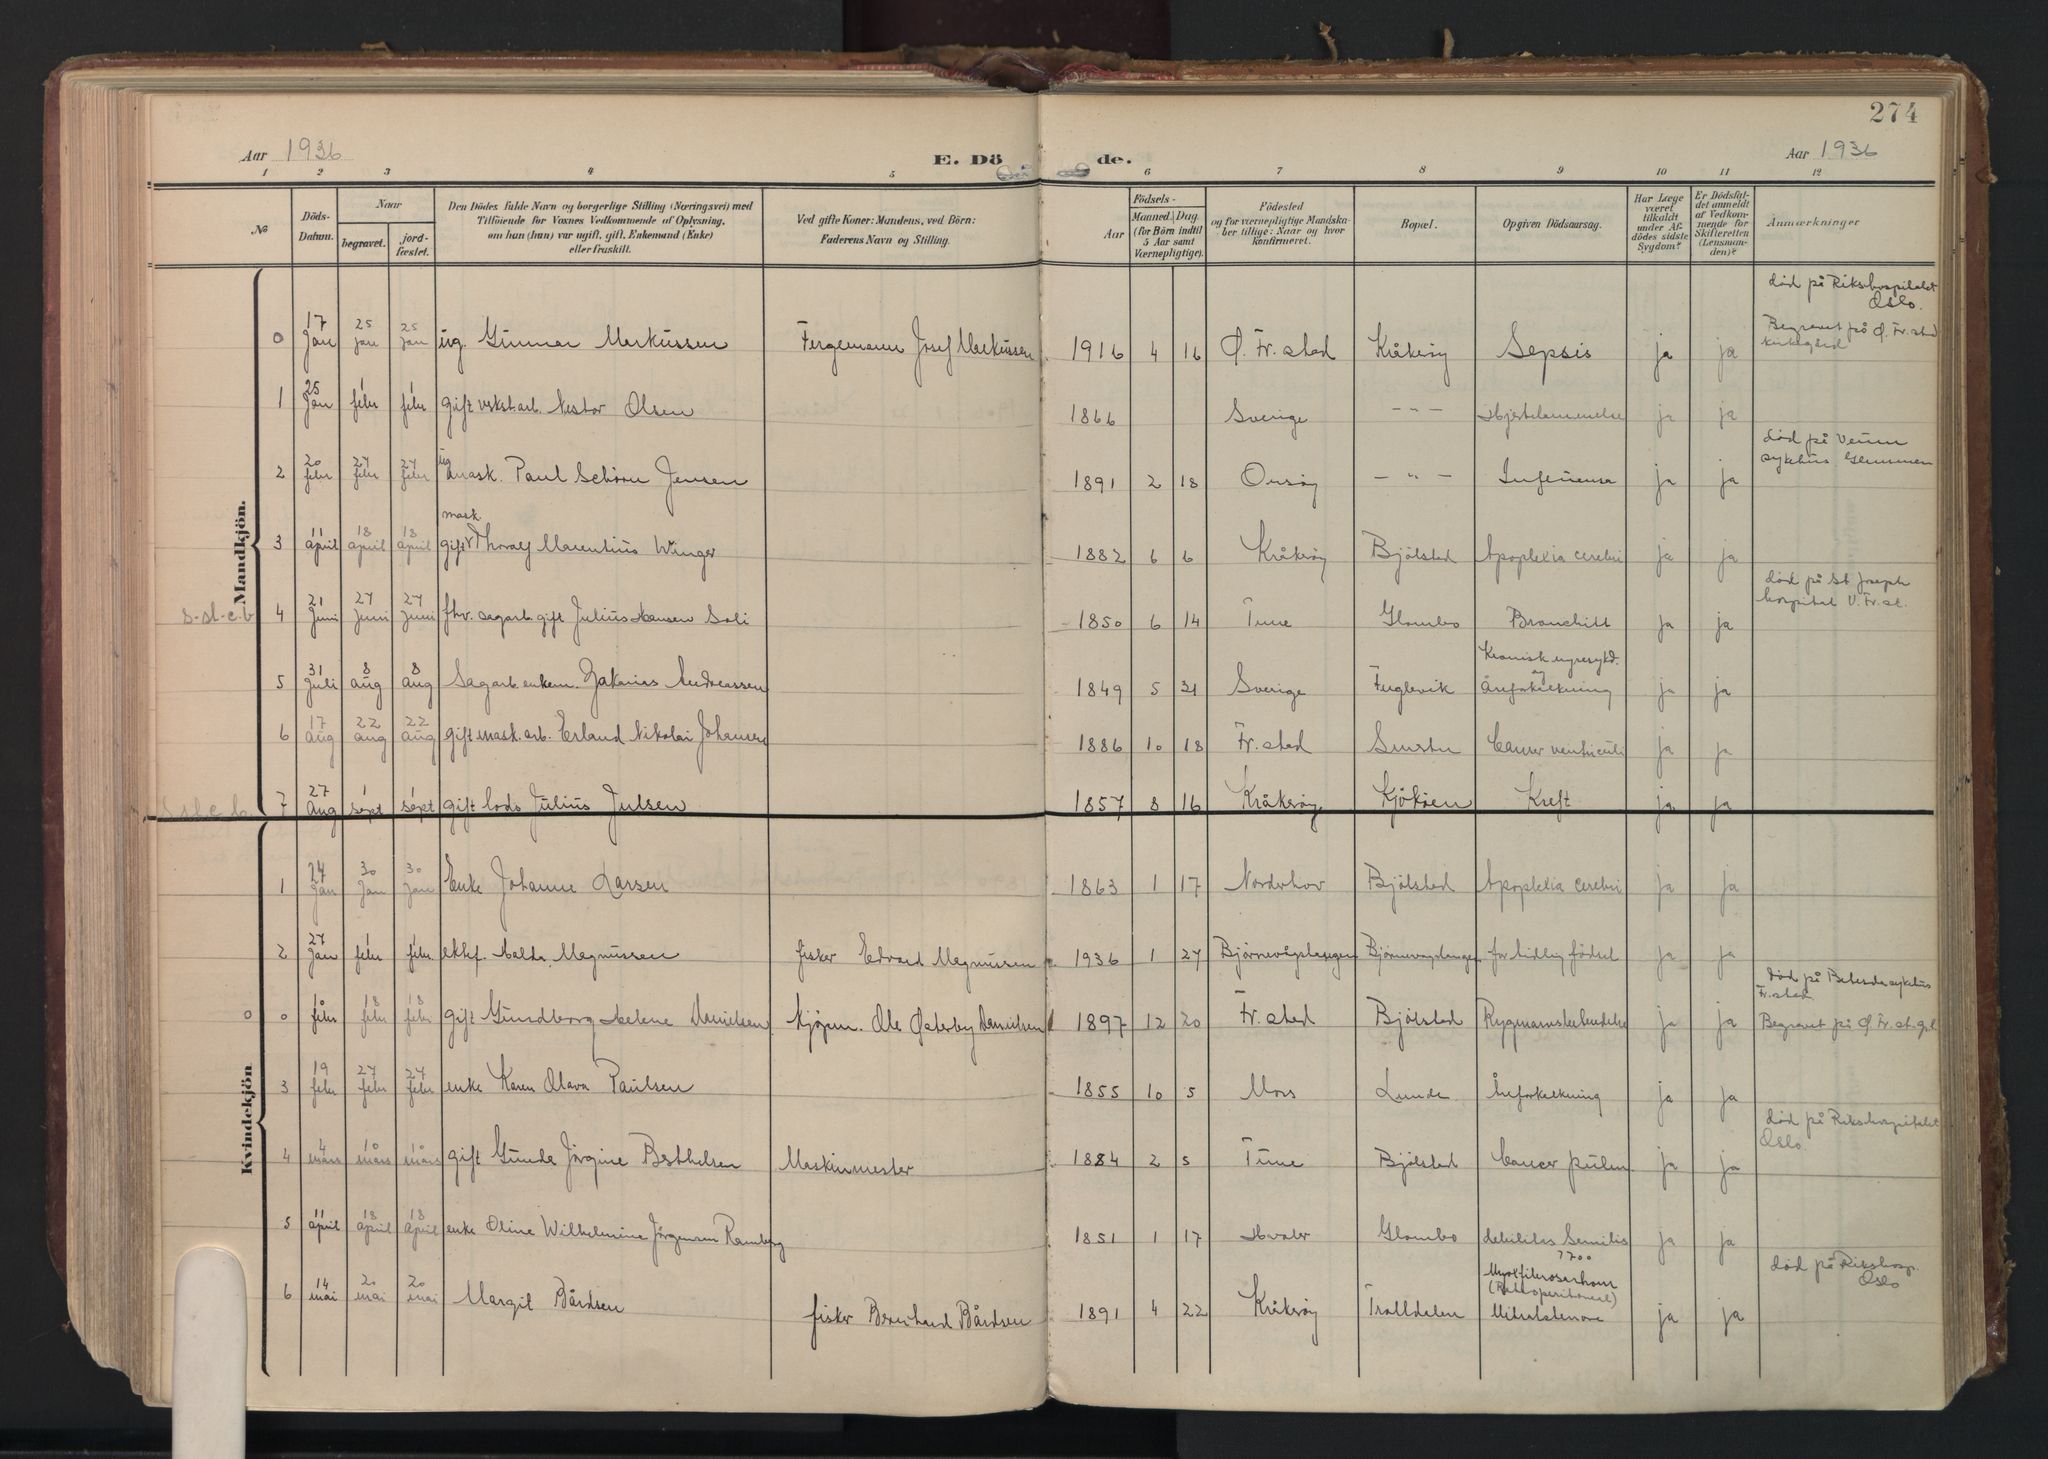 274
Aar 1936 E. Dö de. Aar 1936
1 2 3 4 5 6 7 8 9 10 11 12
№
Döds-Datum.
Naar
begravet.
jord-fæstet.
Den Dödes fulde Navn og borgerlige Stilling (Næringsvei) med
Tilföiende for Voxnes Vedkommende af Oplysning,
om han (hun) var ugift, gift, Enkemand (Enke)
eller fraskilt.
Ved gifte Koner: Mandens, ved Börn:
Faderens Navn og Stilling.
Födsels-
Aar
Maaned Dag
(for Börn indtil
5 Aar samt
Værnepligtige).
Födested
og for værnepligtige Mandska-
ber tillige: Naar og hvor
konfirmeret.
Bopæl.
Opgiven Dödsaarsag.
Har Læge
været
tilkaldt
under Af-
dödes sidste
Sygdom?
Er Dödsfal-
det anmeldt
af Vedkom-
mende for
Skifteretten
(Lensman-
den)?
Anmærkninger
Mandkjön.
død på Rikshospitalet
Oslo.
Begravet på Ø. Fr.stad
kirkegård
0 17 Jan 25 jan 25 jan ug. Gunnar Markussen Fergemann Josef Markussen 1916 4 16 Ø. Fr.stad Kråkerøy Sepsis ja ja
1 25 Jan 1 febr 1 febr gift verkst.arb. Nestor Olsen 1866 Sverige -"- Hjertelammelse ja ja
død på Veum
sykehus Glemmen
2 20 febr 27 febr 27 febr ug Paul Schörn Jensen 1891 2 18 Onsøy -"- ja ja
mask
3 11 april 18 april 18 april gift Thoralf Marentius Winger 1882 6 6 Kråkerøy Bjølstad Apoplexia cerebri ja ja
død på St Joseph
hospital V. Fr.st.
s-st-c.b 4 21 Juni 27 Juni 27 Juni fhv. sagarb. gift Julius Hansen Soli 1850 6 14 Tune Glombo Bronchitt ja ja
Kronisk nyresykd.
og
5 31 Juli 8 aug 8 aug Sagarb. enkem. Zakarias Andreassen 1849 5 31 Sverige Fuglevik Åreforkalkning ja ja
6 17 aug 22 aug 22 aug gift mask.arb. Erland Nikolai Johansen 1886 10 18 Fr.stad Smertu Cancer ventriculi ja ja
s.st.c.b. 7 27 Aug 1 sept 1 sept gift lods Julius Julsen 1857 8 16 Kråkerøy Kjøkøen Kreft ja ja
Kvindekjön
1 24 Jan 30 Jan 30 Jan Enke Johanne Larsen 1863 1 17 Norderhov Bjølstad Apoplexia cerebri ja ja
2 27 Jan 1 febr 1 febr ektef. Magnussen fisker Edvard Magnussen 1936 1 27 Bjørnevågstangen Bjørnevågstangen for tidlig fødsel ja ja
død på Betesda sykehus
Fr.stad
0 0 10 febr 18 febr 18 febr gift Gundborg Helene Danielsen kjøpm. Ole Østerby Danielsen 1897 12 20 Fr.stad Bjølstad Rygmarvsbetendelse ja ja Begravet på Ø. Fr.st. g.l.
3 19 febr 27 febr 27 febr enke Karen Olava Paulsen 1855 10 5 Moss Lunde Åreforkalkning ja ja
død på Rikshospitalet
Oslo
4 4 mars 10 mars 10 mars gift Gunda Jörgine Berthelsen Maskinmester 1884 2 5 Tune Bjølstad Cancer pulm ja ja
5 11 april 18 april 18 april enke Oline Wilhelmine Jörgensen Ramberg 1851 1 17 Hvaler Glombo debilitas Senilis ja ja
død på Rikshosp.
Oslo
(Retroperitoneal)
6 14 mai 20 mai 20 mai Margit Bårdsen fisker Bernhard Bårdsen 1891 4 22 Kråkerøy Trolldalen Mitralstenose ja ja